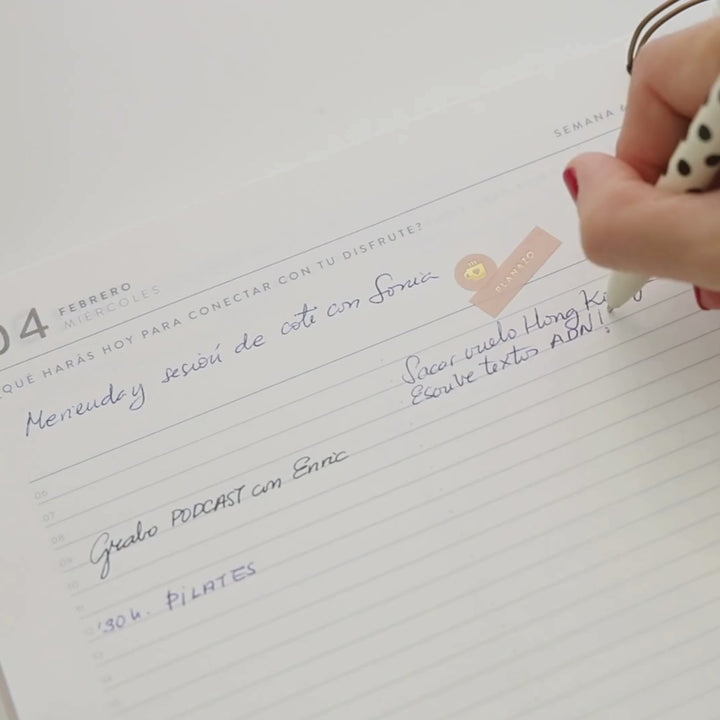 SEMANA
04 FEBRERO
MIÉRCOLES
¿QUÉ HARÁS HOY PARA CONECTAR CON TU DISFRUTE?
Merienda y sesión de cote con Sonia
PLANAZO
Sacar vuelo Hong
Escribe textos ADN!
06
07
08
09
10
Grabo PODCAST con Enric
'30 h. PILATES